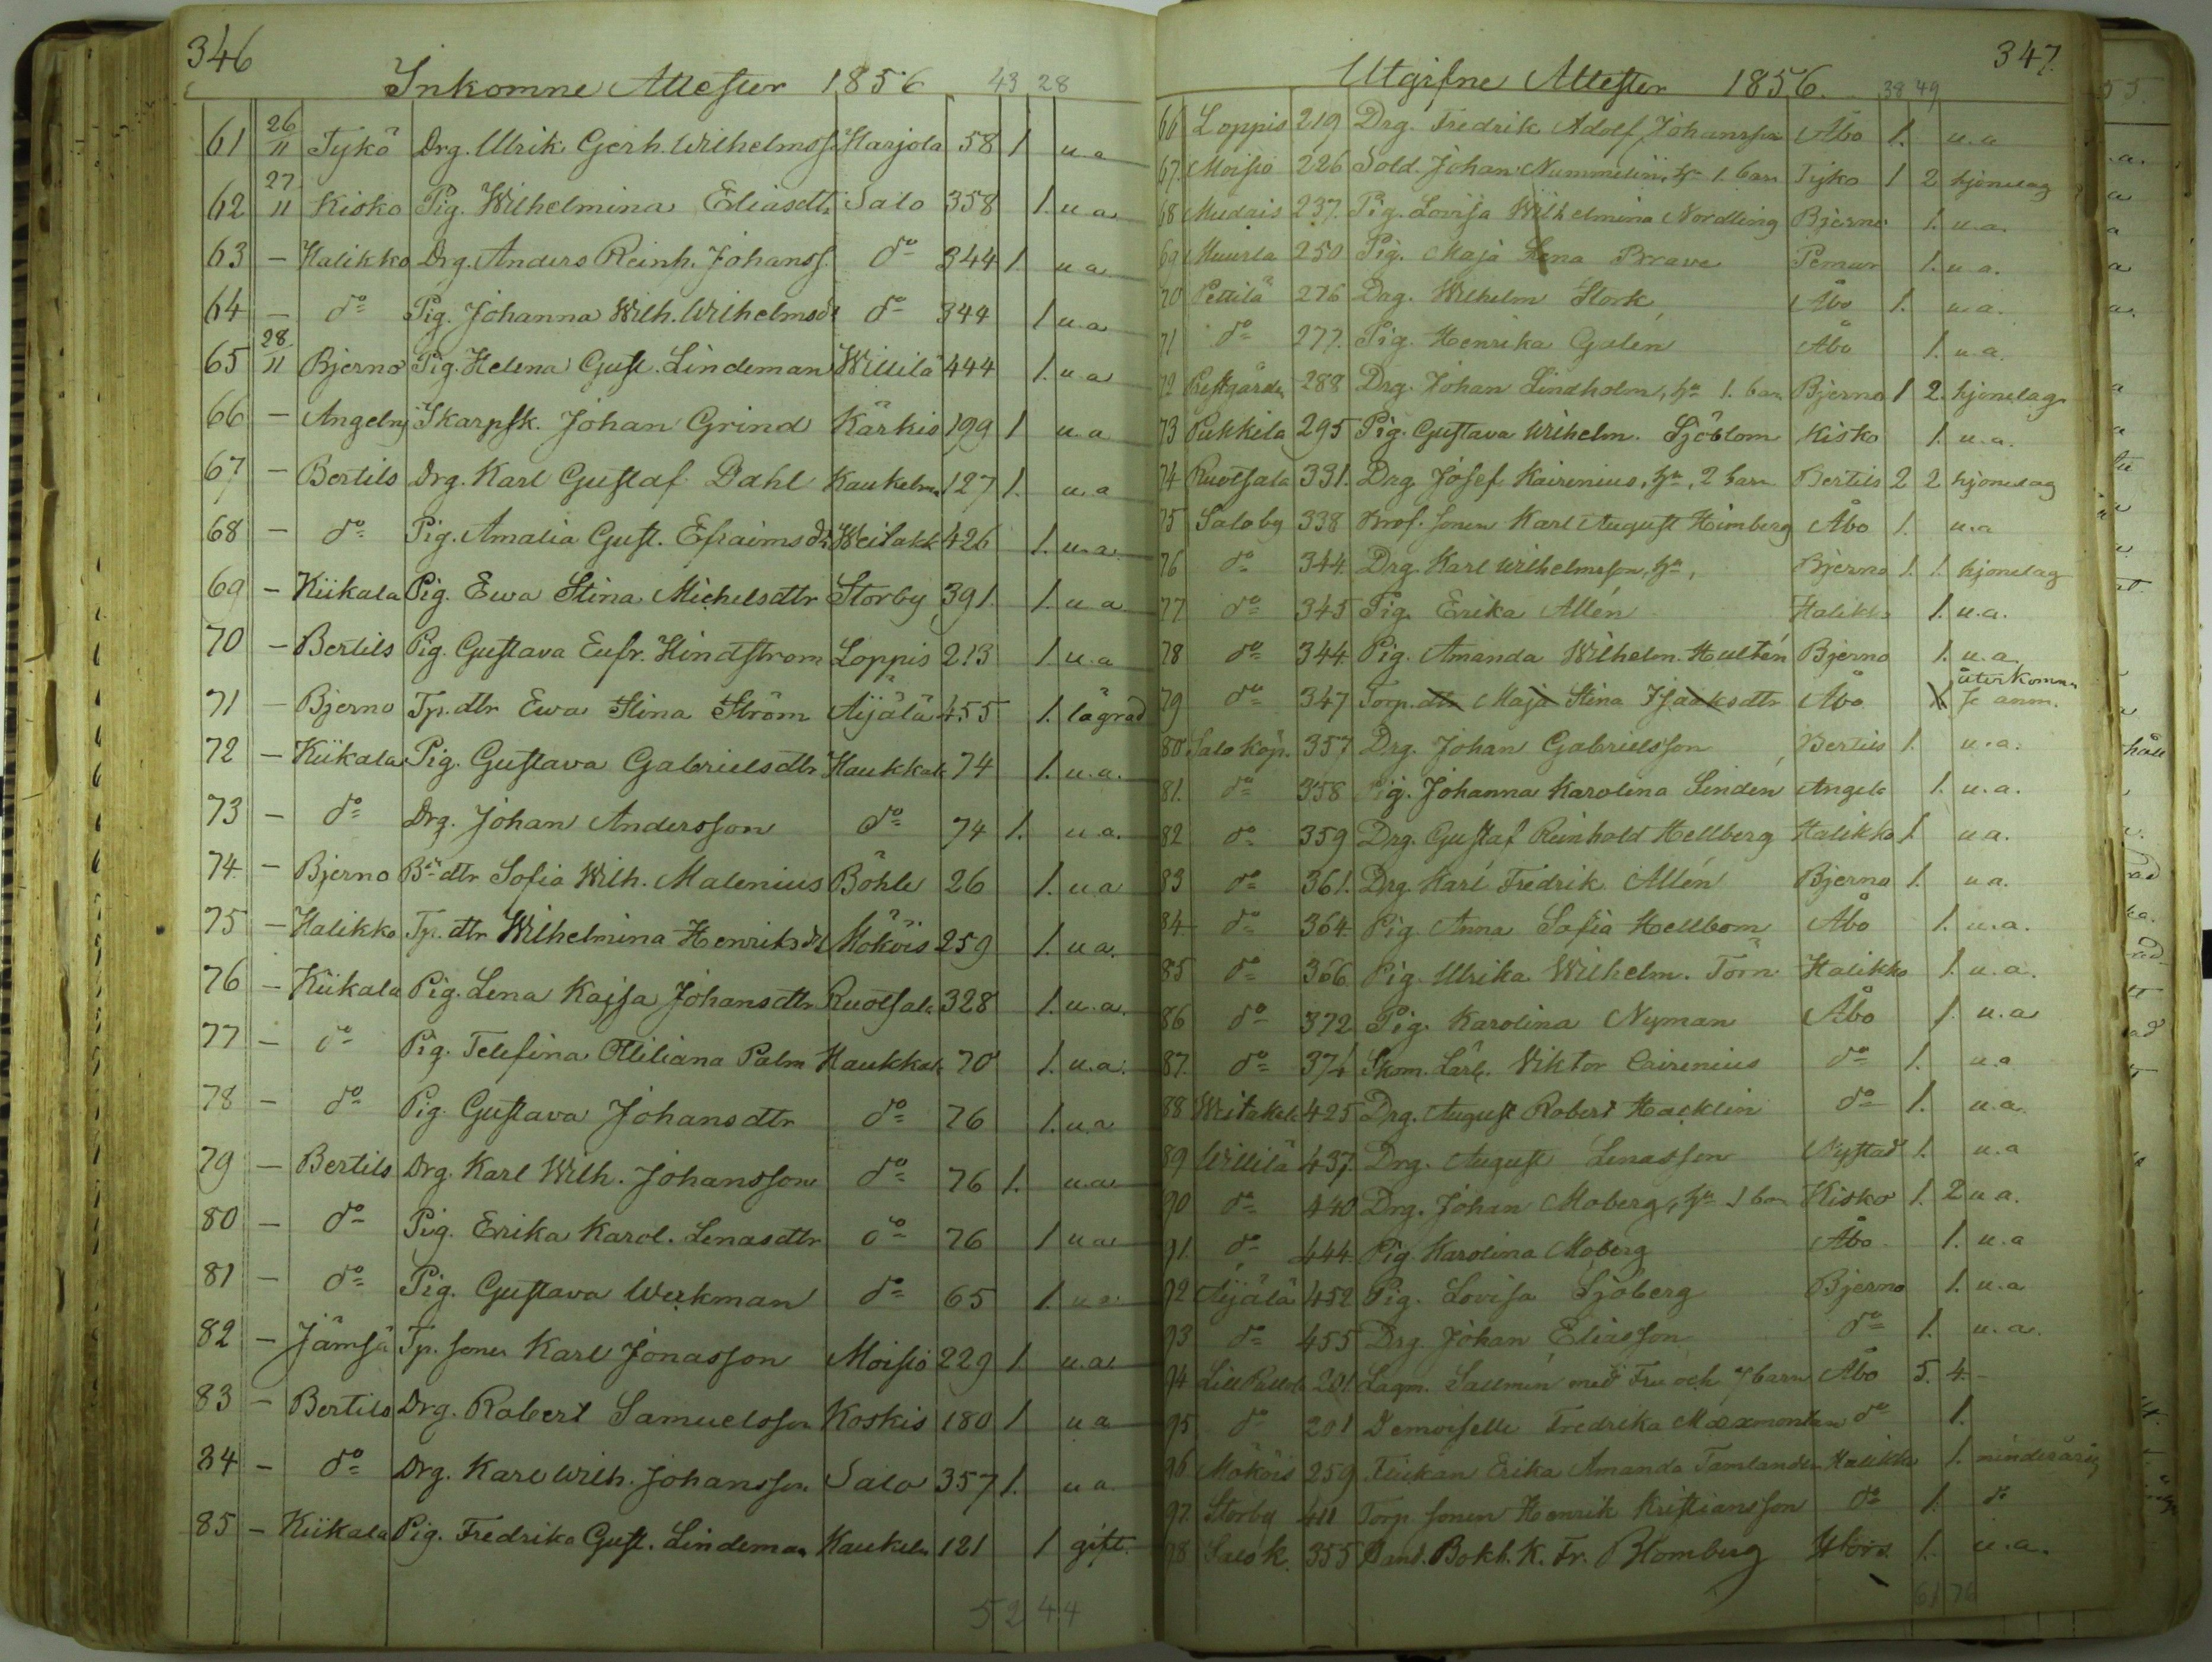 346
Inkomne Attester 1856 43 28
61 26/11 Tykö Drg. Ulrik Gerh. Wilhelmss. Harjola 58 1 u.a
62 27/11 Kisko Pig. Wilhelmina Eliasdtr Salo 358 1. u.a
63 – Halikko Drg. Anders Reinh. Johanss. do 344 1. u.a.
64 – do Pig. Johanna Wilh. Wilhelmsdr do 344 1 u.a
65 28/11 Bjerno Pig. Helena Gust. Lindeman Willilä 444 1. u.a
66 – Angelnj Skarpsk. Johan Grind Kärkis 199 1 u.a
67 – Bertils Drg. Karl Gustaf Dahl Kaukelm 127 1. u.a
68 – do Pig. Amalia Gust. Efraimsdr Weitakk 426 1. u.a.
69 – Kiikala Pig. Ewa Stina Michelsdtr Storby 391. 1. u.a
70 – Bertils Pig. Gustava Eufr. Hindstrom Loppis 213 1 u.a
71 – Bjerno Tp. dtr Ewa Stina Ström Aijälä 455 1. lägrad
72 – Kiikala Pig. Gustava Gabrielsdtr Haukkal 74 1. u.a.
73 – do Drg. Johan Andersson do 74 1. u.a.
74 – Bjerno Bn dtr Sofia Wilh. Malenius Böhle 26 1. u.a
75 – Halikko Tp. dtr Wilhelmina Henriksdtr Mököis 259 1. u.a.
76 – Kiikala Pig. Lena Kajsa Johansdtr Ruotsala 328 1. u.a.
77 – do Pig. Telefina Otiliana Palm Haukkal 70 1. u.a.
78 – do Pig. Gustava Johansdtr do 76 1. u.a
79 – Bertils Drg. Karl Wilh. Johansson do 76 1. u.a.
80 – do Pig. Erika Karol. Lenasdtr do 76 1 u.a.
81 – do Pig. Gustava Werkman do 65 1. u.a.
82 – Jämsä Tp. sonen Karl Jonasson Moisio 229 1. u.a.
83 – Bertils Drg. Robert Samuelsson Koskis 180 1 u.a
84 – do Drg. Karl Wilh. Johansson Salo 357 1. u.a
85 – Kiikala Pig. Fredrika Gust. Lindeman Kaukeln 121 1 gift.
52 44
347.
Utgifne Attester 1856. 38 49
66 Loppis 219 Drg. Fredrik Adolf Johansson Åbo 1. u.a
67. Moisio 226 Sold. Johan Nummelin, hu 1. barn Tyko 1 2 hjonelag
68 Mudais 237. Pig. Lovisa Wilhelmina Nordling Bjerno 1. u.a.
69 Muurla 250 Pig. Maja Lena Brave Pemar 1. u.a.
70 Pettilä 276 Drg. Wilhelm Stork Åbo 1. u.a.
71 do 277. Pig. Henrika Galen Åbo 1. u.a.
72 Prestgården 288 Drg. Johan Lindholm, hu 1. barn Bjerno 1 2. hjonelag
73 Pukkila 295 Pig. Gustava Wilhelm. Sjöblom Kisko 1. u.a.
74 Ruotsala 331. Drg. Josef Kairenius, hu, 2 barn Bertils 2 2 hjonelag
75 Salo by 338 Prof. sonen Karl August Himberg Åbo 1. u.a
76 do 344. Drg. Karl Wilhelmsson, hu, Bjerno 1. 1. hjonelag
77 do 345 Pig. Erika Allén Halikko 1. u.a.
78 do 344 Pig. Amanda Wilhelm. Hultén Bjerno 1. u.a.
79 do 347 Torp. dtr Maja Stina Isaaksdtr Åbo 1. återkommen se anm.
80 Salo köp. 357 Drg. Johan Gabrielsson Bertils 1. u.a.
81. do 358 Pig. Johanna Karolina Lindén Angeln 1. u.a.
82 do 359 Drg. Gustaf Reinhold Hellberg Halikko 1 u.a.
83 do 361. Drg. Karl Fredrik Allén Bjerno 1. u.a.
84. do 364. Pig. Anna Sofia Hellbom Åbo 1. u.a.
85 do 366 Pig. Ulrika Wilhelm. Törn Halikko 1. u.a.
86 do 372 Pig. Karolina Nyman Åbo 1. u.a
87. do 374 Skom. Lärl. Viktor Cairenius do 1. u.a
88 Weitakk 425 Drg. August Robert Hacklin do 1. u.a.
89 Willilä 437. Drg. August Lenasson Nystad 1. u.a
90 do 440 Drg. Johan Moberg, hu 1 barn Kisko 1. 2 u.a.
91. do 444. Pig. Karolina Moberg Åbo 1. u.a
92 Aijälä 452 Pig. Lovisa Sjöberg Bjerno 1. u.a
93 do 455 Drg. Johan Eliasson do 1. u.a.
94 Lill Pallola 201 Lagm. Sallmén med Fru och 7 barn Åbo 5. 4. –
95 do 201 Demoiselle Fredrika Maxmontan do 1.
96 Mököis 259 Flickan Erika Amanda Tamlander Halikko 1. minderårig
97. Storby 411 Torp. sonen Henrik Kristiansson do 1. do
98 Salo k. 355 Hand. Bokh. K. Fr. Blomberg H:fors 1. u.a.
61 76